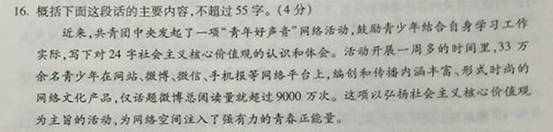 16. 概括下面这段话的主要内容,不超过 55 字。(4 分)
近来,共青团中央发起了一项“青年好声音”网络活动,鼓励青少年结合自身学习工作
实际,写下对 24 字社会主义核心价值观的认识和体会。活动开展一周多的时间里,33 万
余名青少年在网站、微博、微信、手机报等网络平台上,编创和传播内涵丰富、形式时尚的
网络文化产品,仅话题微博总阅读量就超过 9000 万次。这项以弘扬社会主义核心价值观
为主旨的活动,为网络空间注入了强有力的青春正能量。